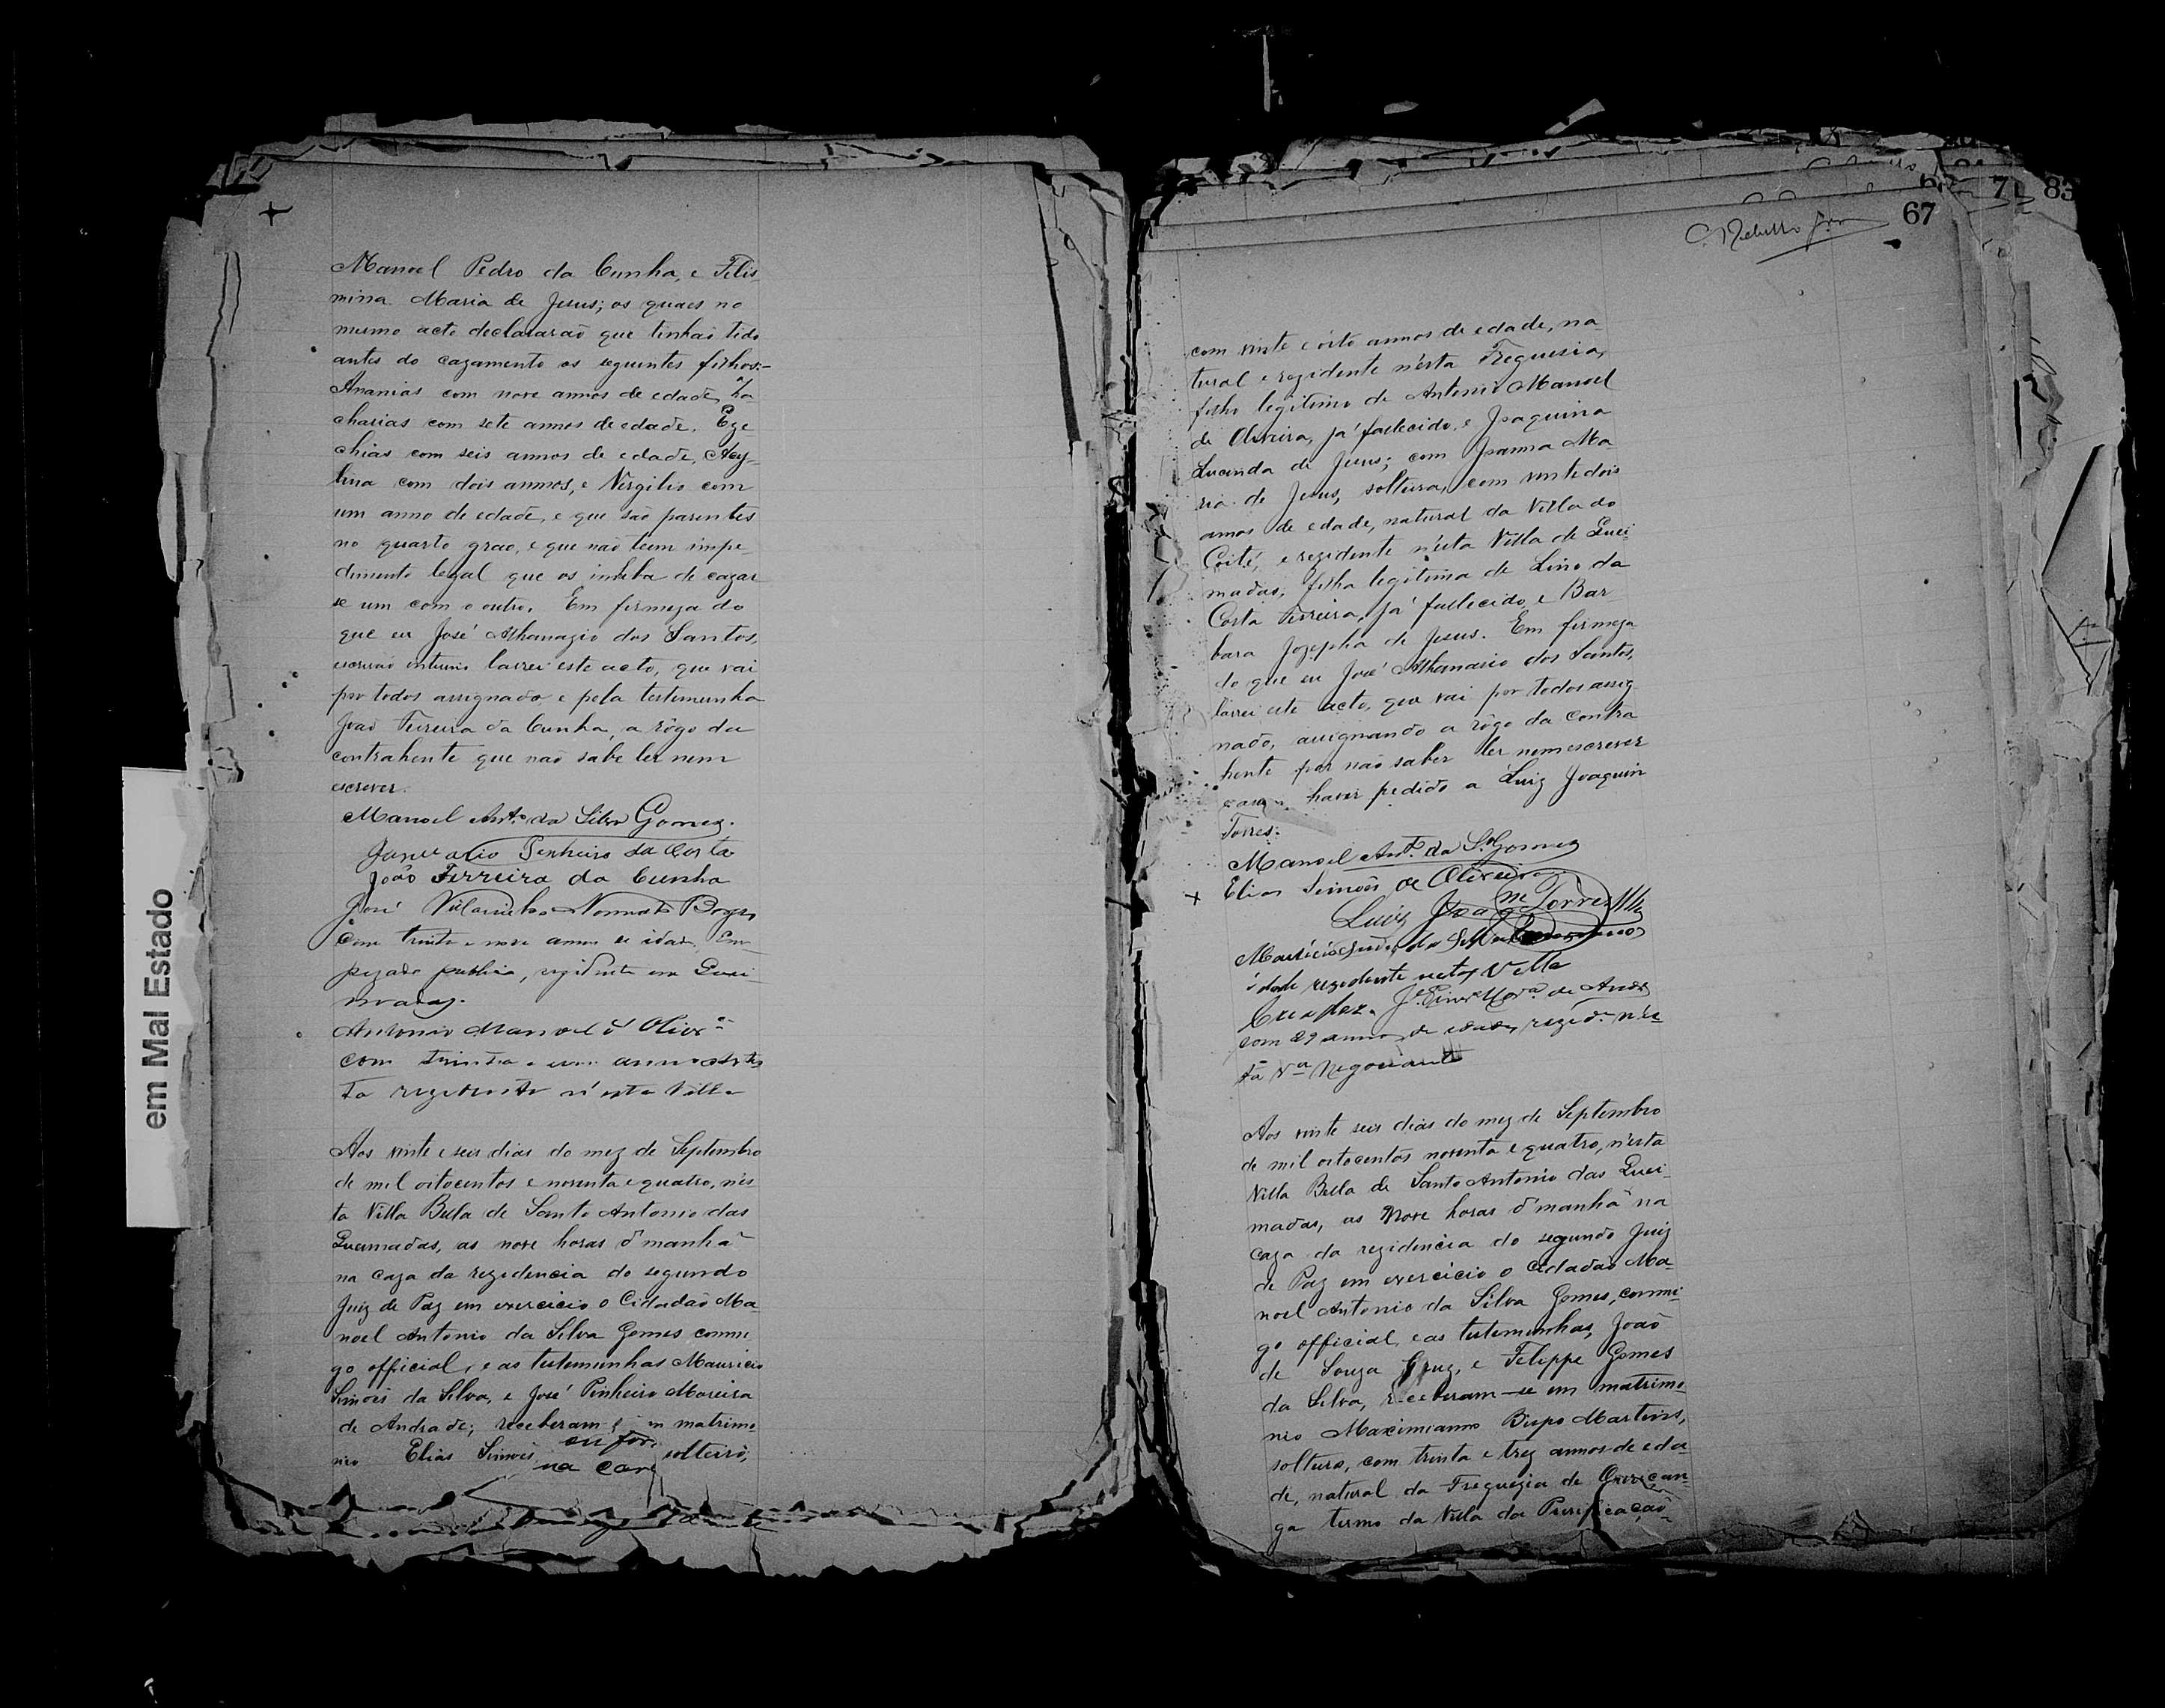 em Mal Estado
Manoel Pedro da Cunha, e Felis-
mina Maria de Jesus; os quaes no
mesmo acto declararaõ que tinhaõ tido
antes do cazamento os seguintes filhos:-
Ananias com nove annos de edade, Za-
charias com sete annos de edade, Eze-
chias com seis annos de edade,
com dois annos, e Virgilio com
um anno de edade, e que saõ parentes
no quarto grao, e que naõ teem impe-
dimento legal que os inhiba de cazar
se um com o outro. Em firmeza do
que eu José Athanazio dos Santos,
escrivaõ interino lavrei este acto, que vai
por todos assignado, e pela testemunha
Joaõ Ferreira da Cunha, a rôgo da
contrahente que naõ sabe ler nem
escrever.
Manoel Antº da Silva Gomes.
Januario Pinheiro da Costa
João Ferreira da Cunha
José Nonnato Borges
Com trinta e nove annos de idade, Em-
pregado publico, rezidente em Quei-
madas.
Antonio Manoel d' Olivrª
com trinta e um annos
ta rezidente n'esta Villa
Aos vinte e seis dias do mez de Septembro
de mil oitocentos e noventa e quatro, n'es-
ta Villa Bella de Santo Antonio das
Queimadas, as nove horas d'manhã
na caza da rezidencia do segundo
Juiz de Paz em exercicio o Cidadaõ Ma-
noel Antonio da Silva Gomes commi-
go official, e as testemunhas Mauricio
Simões da Silva, e José Pinheiro Moreira
de Andrade; receberam-se em matrimo-
nio Elias Simões solteiro,
67
71
83
com vinte e oito annos de edade, na-
tural e rezidente n'esta Freguesia,
filho legitimo de Antonio Manoel
de Oliveira, já fallecido, e Joaquina
Lucinda de Jesus; com Joanna Ma-
ria de Jesus, solteira, com vinte dois
annos de edade, natural da Villa do
Coité, e rezidente n'esta Villa de Quei-
madas, filha legitima de Lino da
Costa Ferreira, já fallecido, e Bar-
bara Jozepha de Jesus. Em firmeza
do que eu José Athanasio dos Santos,
lavrei este acto, que vai por todos assig-
nado, assignando a rôgo da contra-
hente por naõ saber ler nem escrever
haver pedido a Luiz Joaquim
Torres.
Manoel Antº da Sª Gomes
Elias Simões de Oliveira
Luiz Joaqm Torres
Mauricio Simões da Silva
idade rezidente nesta Villa
Jé Pinrº Morª de Andre
com 29 annos de idade, rezide n'es-
ta Vª Negociante
Aos vinte seis dias do mez de Septembro
de mil oitocentos noventa e quatro, n'esta
Villa Bella de Santo Antonio das Quei-
madas, as nove horas d'manhã na
caza da rezidencia do segundo Juiz
de Paz em exercicio o Cidadaõ Ma-
noel Antonio da Silva Gomes, commi-
go official, e as testemunhas, Joaõ
de Souza Cruz, e Felippe Gomes
da Silva, receberam-se em matrimo-
nio Maximianno Bispo Martins,
solteiro, com trinta e trez annos de eda-
de, natural da Freguezia de Ouriçan-
ga termo da Villa da Purificaçaõ